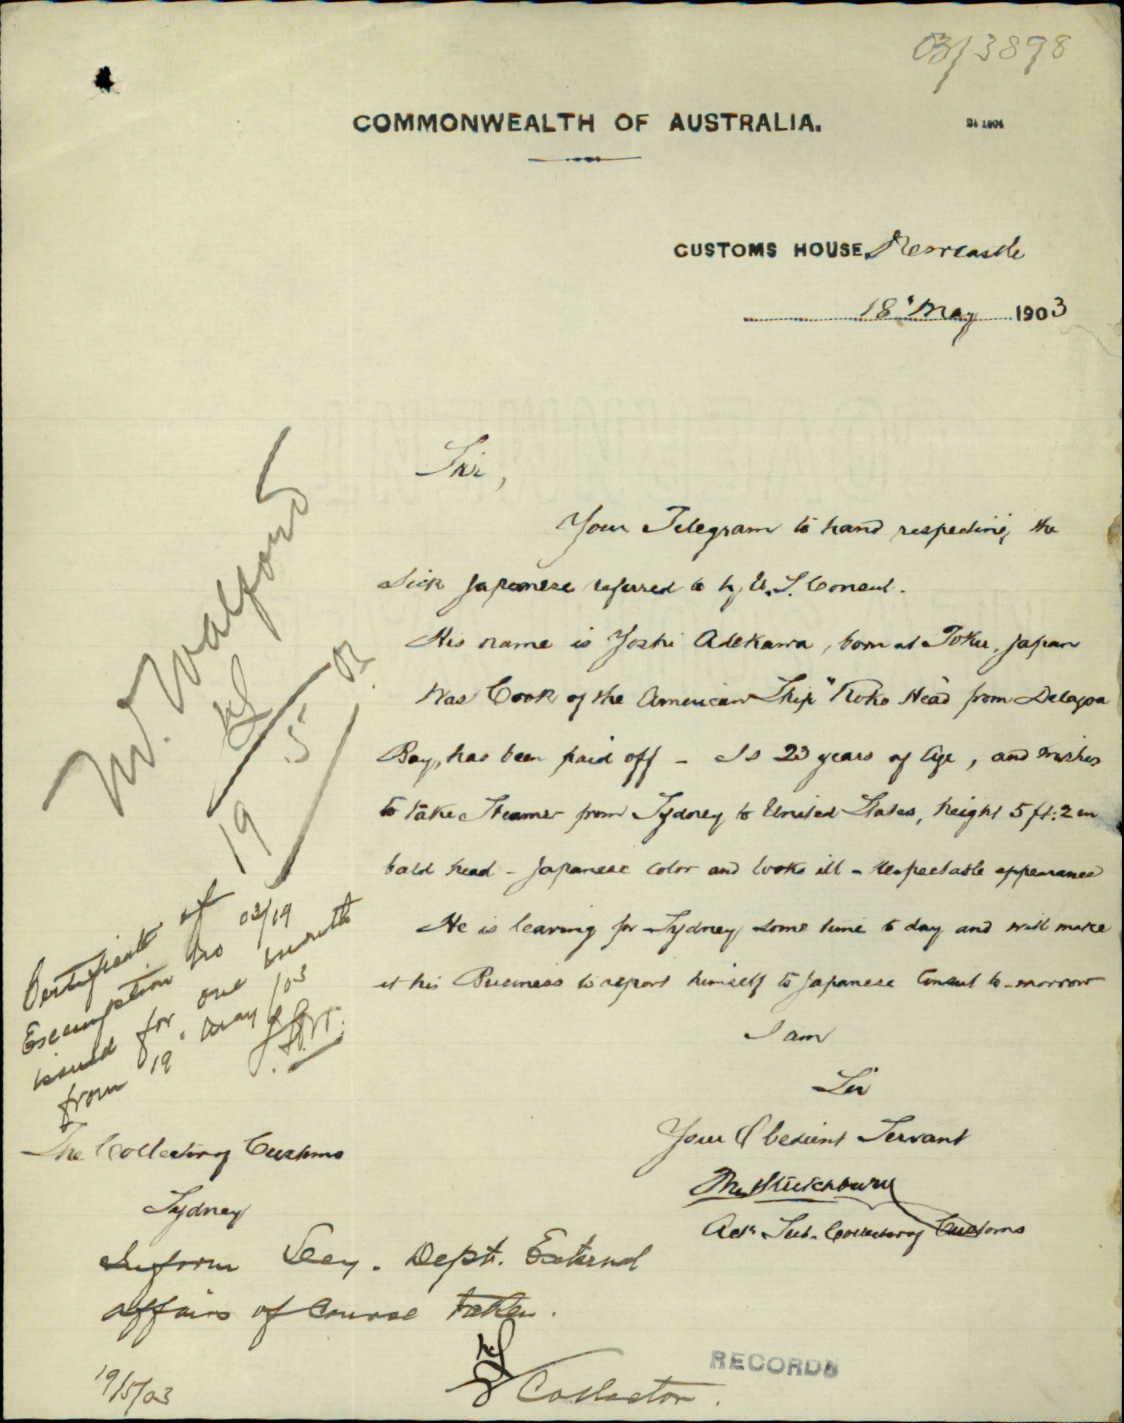 03/3898
COMMONWEALTH OF AUSTRALIA.
CUSTOMS HOUSE, Newcastle
18" May 1903
Sir,
Your Telegram to hand respecting the
Sick Japanese referred to by U.S. Consul.
His name is Yoshi Adekawa, born at Toku, Japan
Was Cook of the American Ship "Koko Head from Delagoa
Bay, has been paid off - Is 23 years of Age, and wishes
to take Steamer from Sydney to United States, height 5 ft: 2 in
bald head - Japanese color and looks ill - Respectable appearance
He is leaving for Sydney some time to day and will make
it his Business to report himself to Japanese Consul to-morrow
I am
Sir
Your Obedient Servant
Thos Stutchbury
Actg Sub. Collector of Customs
The Collector of Customs
Sydney
W. Walford
19/5/03
Certificate of
Exemption No 03/19
issued for one month
from 19" May /03
Inform Secy. Dept. External
Affairs of course taken.
Collector.
19/5/03
RECORDS